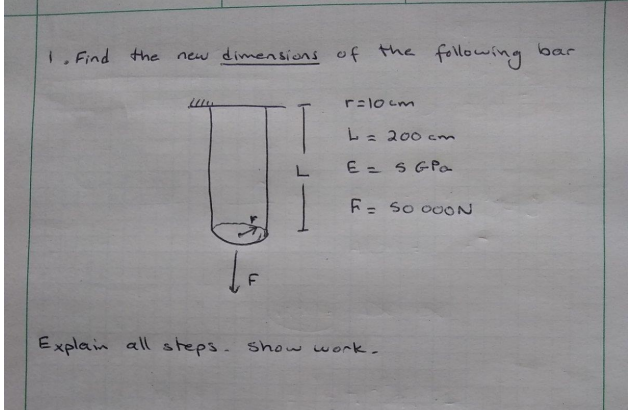 1. Find the new dimensions of the following bar
r=10cm
L = 200 cm
L
E = 5 GPa
F = 50 000N
r
F
Explain all steps. Show work.